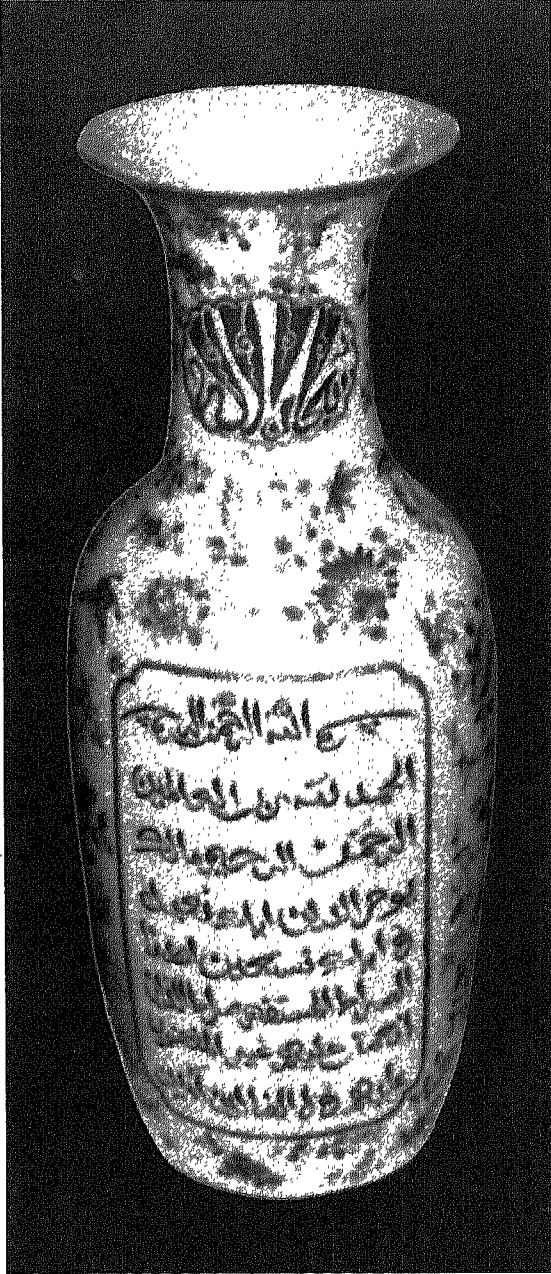 بسم الله الرحمن الرحيم
الحمد لله رب العالمين
الرحمن الرحيم مالك
يوم الدين اياك نعبد
و اياك نستعين اهدنا
الصراط المستقيم صراط الذين
انعمت عليهم غير المغضوب
عليهم ولا الضالين امين